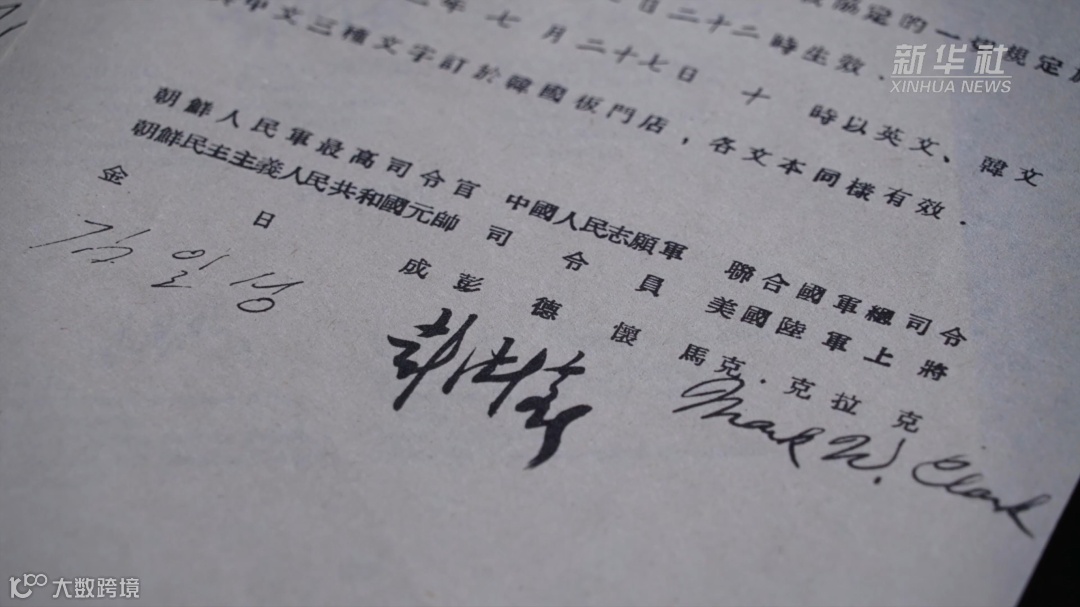 新华社
XINHUA NEWS
協定的一切規定
日二十二時生效．
年七月二十七日 十 時以英文、韓文
中文三種文字訂於韓國板門店，各文本同樣有效．
朝鮮人民軍最高司令官 中國人民志願軍 聯合國軍總司令
朝鮮民主主義人民共和國元帥 司令員 美國陸軍上將
金日成 彭德懷 馬克．克拉克
김일성 彭德懷 Mark W. Clark
大数跨境